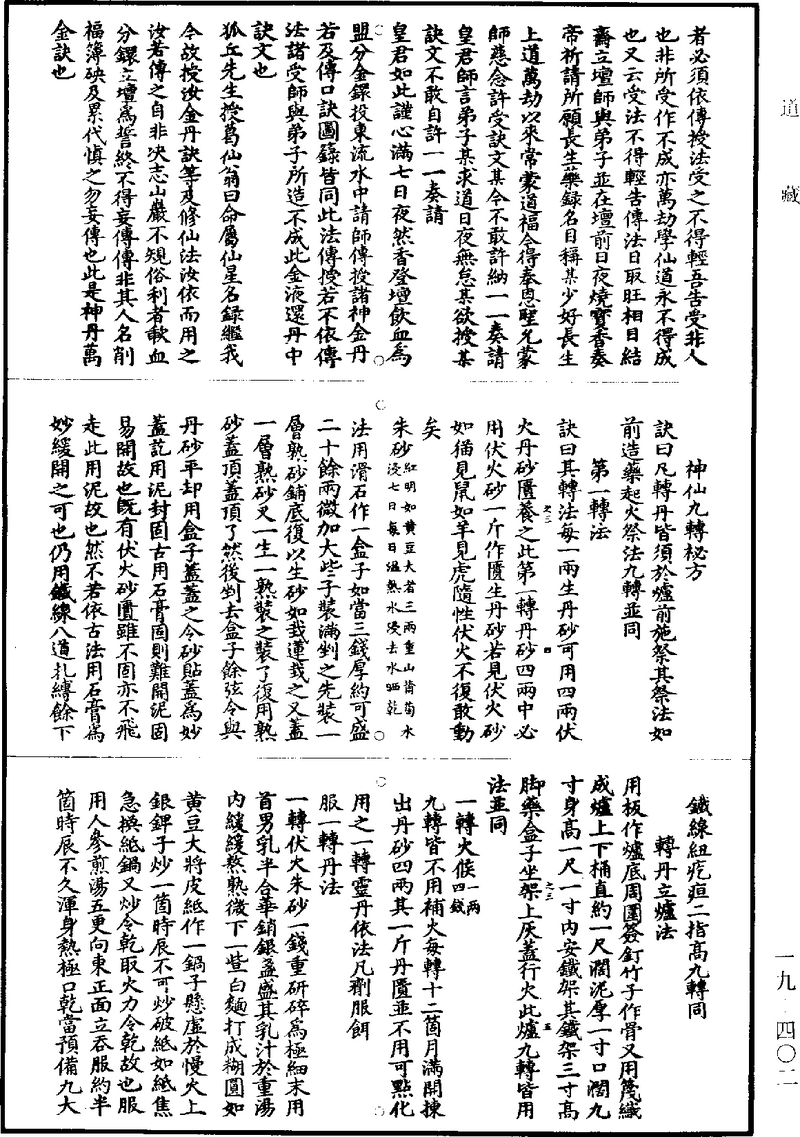 道藏
者必須依傳授法受之不得輕吾告受非人
也非所受作不成亦萬劫學仙道永不得成
也又云受法不得輕告傳法日取旺相日結
齋立壇師與弟子並在壇前日夜燒寶香奏
帝祈請所願長生藥錄名目稱某少好長生
上道萬劫以來常蒙道福今得奉恩聖允蒙
師慈念許受訣文某今不敢許納一一奏請
皇君師言弟子某求道日夜無怠某欲授某
訣文不敢自許一一奏請
皇君如此謹心滿七日夜然香登壇飲血為
盟分金鐶投東流水中請師傳授諸神金丹
若及傳口訣圖錄皆同此法傳授若不依傳
法諸受師與弟子所造不成此金液還丹中
訣文也
狐丘先生授葛仙翁曰命屬仙星名録繼我
今故授汝金丹訣等及修仙法汝依而用之
汝若傳之自非決志山巖不規俗利者歃血
分鐶立壇為誓終不得妄傳傳非其人名削
福簿殃及累代慎之勿妄傳也此是神丹萬
金訣也
神仙九轉秘方
訣曰凡轉丹皆須於爐前施祭其祭法如
前造藥起火祭法九轉並同
第一轉法
訣曰其轉法每一兩生丹砂可用四兩伏
火丹砂匱養之此第一轉丹砂四兩中必
用伏火砂一斤作匱生丹砂若見伏火砂
如猫見鼠如羊見虎隨性伏火不復敢動
矣
朱砂紅明如黄豆大者三兩重山茵蔯水
浸七日每日温熱水浸去水晒乾
法用滑石作一盒子如當三錢厚約可盛
二十餘兩微加大些子裝滿剉之先裝一
層熟砂鋪底復以生砂如栽蓮栽之又蓋
一層熟砂又一生一熟裝之裝了復用熟
砂蓋頂蓋頂了然後剉去盒子餘弦令與
丹砂平却用盒子蓋蓋之令砂貼蓋為妙
蓋訖用泥封固古用石膏固則難開泥固
易開故也既有伏火砂匱雖不固亦不飛
走此用泥故也然不若依古法用石膏為
妙緩開之可也仍用鐵線八道扎縛餘下
鐵線紐疙疸二指高九轉同
轉丹立爐法
用板作爐底周圍簽釘竹子作骨又用篾纖
成爐上下桶直約一尺濶泥厚一寸口濶九
寸身高一尺一寸内安鐵架其鐵架三寸高
脚藥盒子坐架上灰蓋行火此爐九轉皆用
法並同
一轉火候一兩四錢
九轉皆不用補火每轉十二箇月滿開揀
出丹砂四兩其一斤丹匱並不用可點化
用之一轉靈丹依法凡劑服餌
服一轉丹法
一轉伏火朱砂一錢重研碎為極細末用
首男乳半合華銷銀盞盛其乳汁於重湯
内緩緩熬熟微下一些白麵打成糊圓如
黄豆大將皮紙作一鍋子懸虛於慢火上
銀錍子炒一箇時辰不可炒破紙如紙焦
急換紙鍋又炒令乾取火力令乾故也服
用人參煎湯五更向東正面立吞服約半
箇時辰不久渾身熱極口乾當預備九大
一九‧四〇二